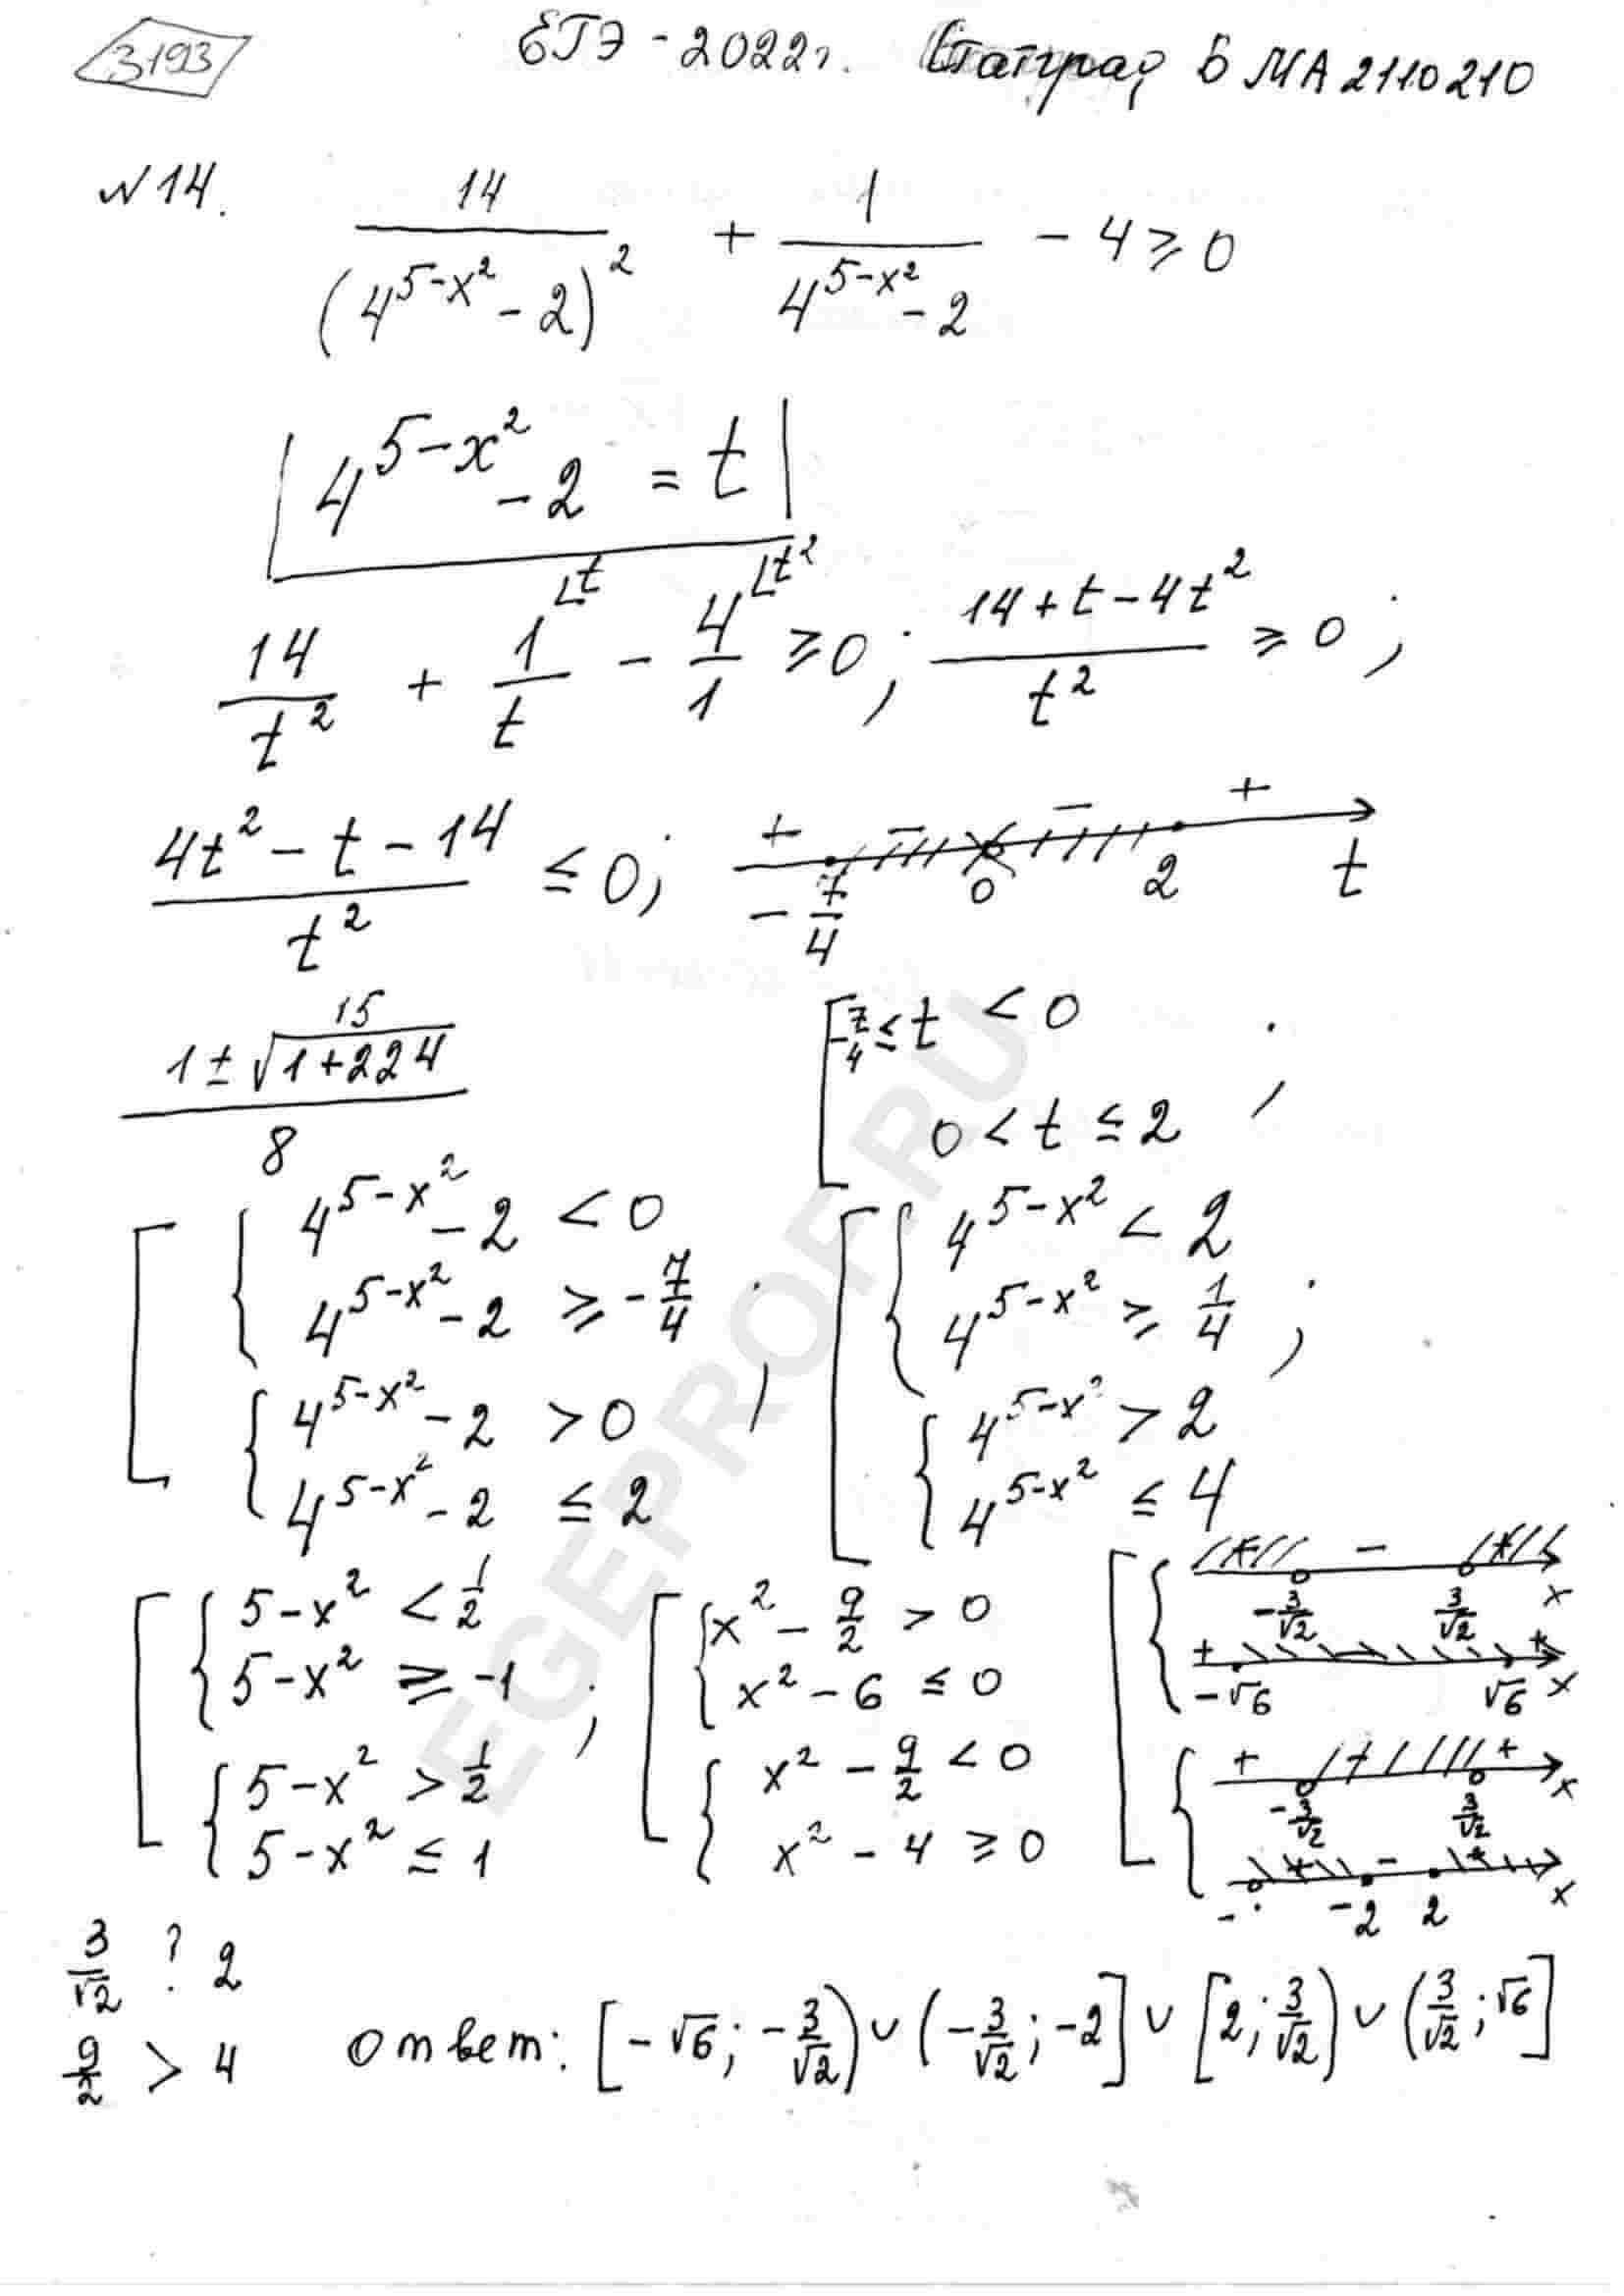 3193
ЕГЭ - 2022г. Статград БМА2110210
№14. 14/(4^(5-x²) - 2)² + 1/(4^(5-x²) - 2) - 4 ≥ 0
|4^(5-x²) - 2 = t|
14/t² + 1/t ∟t - 4/1 ∟t² ≥ 0; (14 + t - 4t²)/t² ≥ 0;
(4t² - t - 14)/t² ≤ 0; + - - + -7/4 0 2 t
(1 ± √(1+224))/8 15 [ -7/4 ≤ t < 0
0 < t ≤ 2 ;
[ { 4^(5-x²) - 2 < 0 [ { 4^(5-x²) < 2
4^(5-x²) - 2 ≥ -7/4 ; 4^(5-x²) ≥ 1/4 ;
{ 4^(5-x²) - 2 > 0 { 4^(5-x²) > 2
4^(5-x²) - 2 ≤ 2 4^(5-x²) ≤ 4
[ { 5-x² < 1/2 [ { x² - 9/2 > 0 [ { + - + -3/√2 3/√2 x
5-x² ≥ -1 ; x² - 6 ≤ 0 + - + -√6 √6 x
{ 5-x² > 1/2 { x² - 9/2 < 0 { + - + -3/√2 3/√2 x
5-x² ≤ 1 x² - 4 ≥ 0 + - + -2 2 x
3/√2 ? 2
9/2 > 4 ответ: [-√6; -3/√2) ∪ (-3/√2; -2] ∪ [2; 3/√2) ∪ (3/√2; √6]
EGEPROF.RU